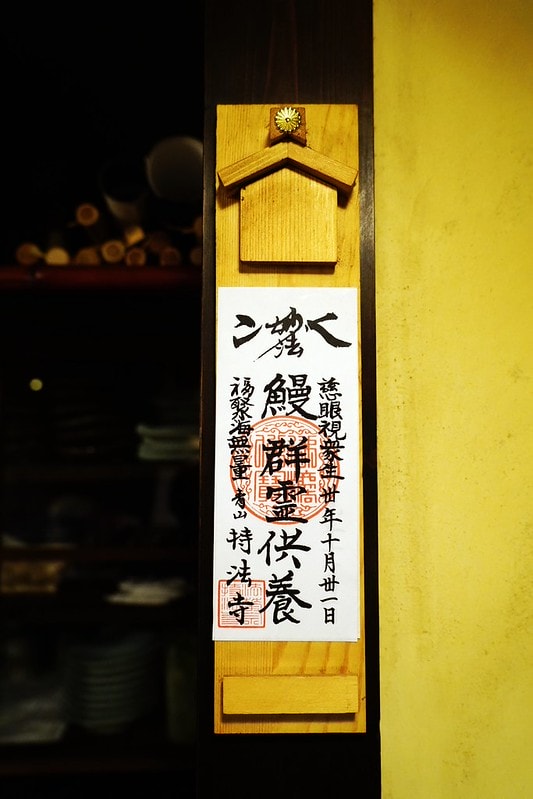 妙法
慈眼視衆生 卅年十月卅一日
鰻群霊供養
福聚海無量 青山 持法寺